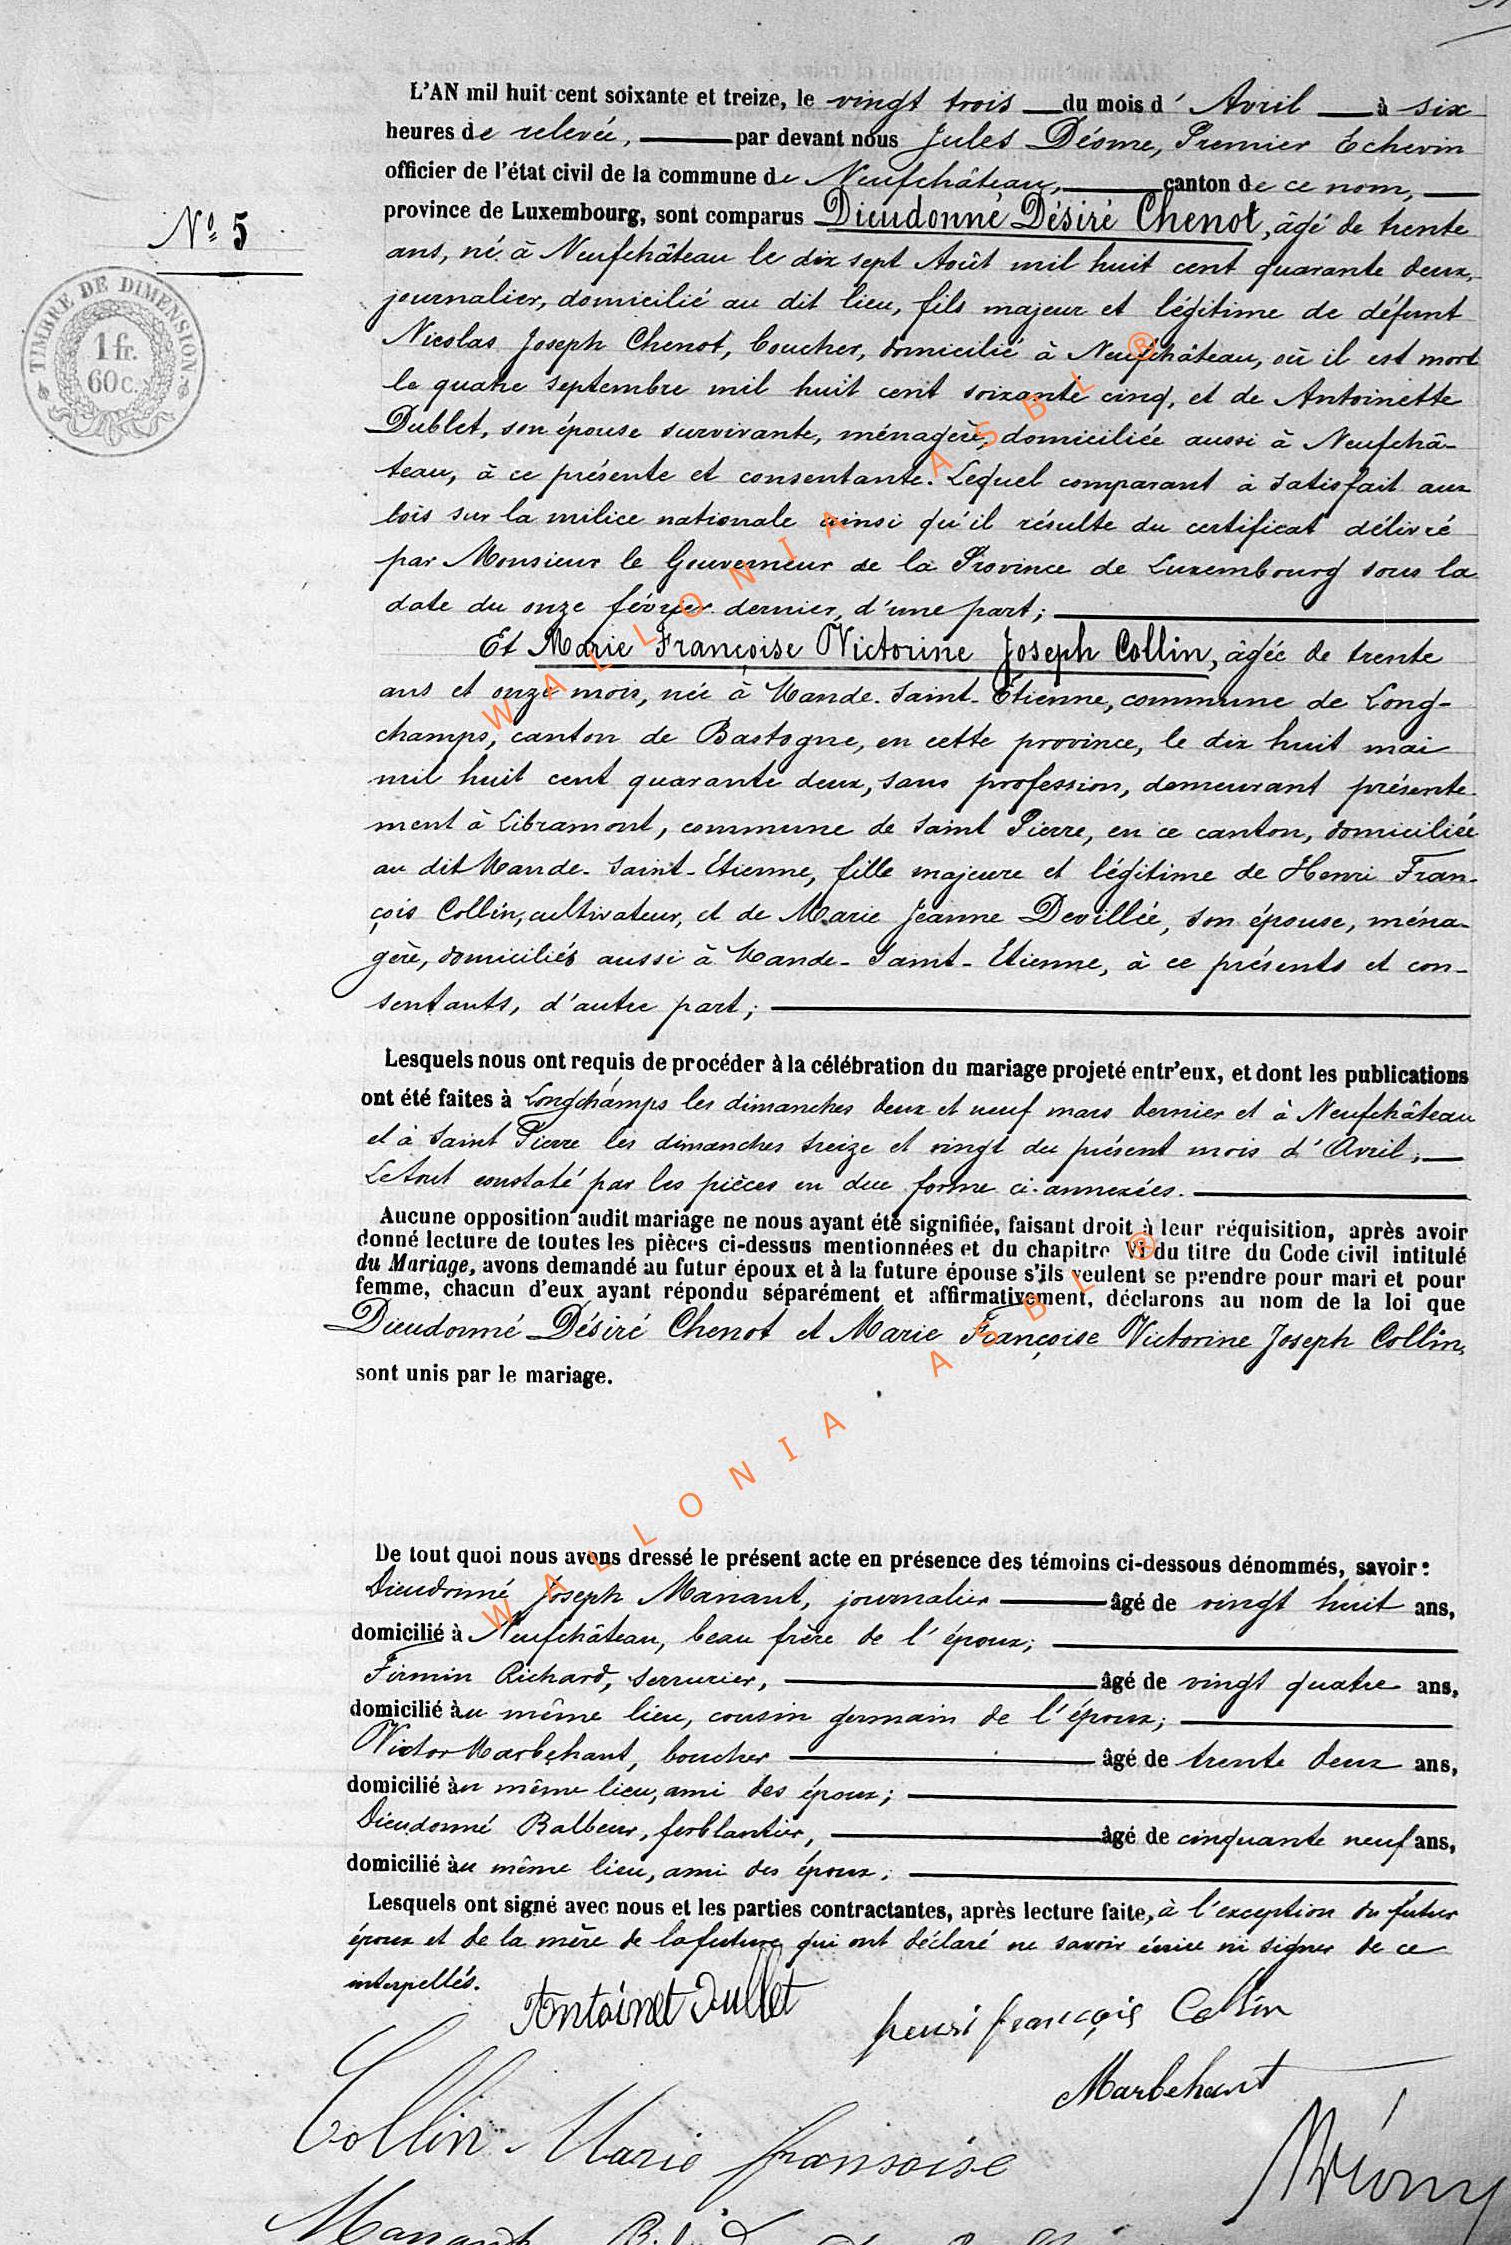 L'AN mil huit cent soixante et treize, le vingt trois du mois d' Avril à six
heures de relevée, par devant nous Jules Désme, Premier Echevin
officier de l'état civil de la commune de Neufchâteau, canton de ce nom,
province de Luxembourg, sont comparus Dieudonné Désiré Chenot, âgé de trente
N° 5
ans, né à Neufchâteau le dix sept Août mil huit cent quarante deux,
TIMBRE DE DIMENSION
1 fr.
60 c.
journalier, domicilié au dit lieu, fils majeur et légitime de défunt
Nicolas Joseph Chenot, boucher, domicilié à Neufchâteau, où il est mort
le quatre septembre mil huit cent soixante cinq, et de Antoinette
Dublet, son épouse survivante, ménagère, domiciliée aussi à Neufchâ-
teau, à ce présente et consentante. Lequel comparant à satisfait aux
lois sur la milice nationale ainsi qu'il résulte du certificat délivré
par Monsieur le Gouverneur de la Province de Luxembourg sous la
date du onze février dernier, d'une part;
Et Marie Françoise Victorine Joseph Collin, âgée de trente
ans et onze mois, née à Mande-Saint-Étienne, commune de Long-
champs, canton de Bastogne, en cette province, le dix huit mai
mil huit cent quarante deux, sans profession, demeurant présente-
ment à Libramont, commune de Saint Pierre, en ce canton, domiciliée
au dit Mande-Saint-Etienne, fille majeure et légitime de Henri Fran-
çois Collin, cultivateur, et de Marie Jeanne Devillée, son épouse, ména-
gère, domiciliés aussi à Mande-Saint-Etienne, à ce présents et con-
sentants, d'autre part;
Lesquels nous ont requis de procéder à la célébration du mariage projeté entr'eux, et dont les publications
ont été faites à Longchamps les dimanches deux et neuf mars dernier et à Neufchâteau
et à Saint Pierre les dimanches treize et vingt du présent mois d'Avril,
Le tout constaté par les pièces en due forme ci-annexées.
Aucune opposition audit mariage ne nous ayant été signifiée, faisant droit à leur réquisition, après avoir
donné lecture de toutes les pièces ci-dessus mentionnées et du chapitre VI du titre du Code civil intitulé
du Mariage, avons demandé au futur époux et à la future épouse s'ils veulent se prendre pour mari et pour
femme, chacun d'eux ayant répondu séparément et affirmativement, déclarons au nom de la loi que
Dieudonné Désiré Chenot et Marie Françoise Victorine Joseph Collin,
sont unis par le mariage.
De tout quoi nous avons dressé le présent acte en présence des témoins ci-dessous dénommés, savoir:
Dieudonné Joseph Manant, journalier âgé de vingt huit ans,
domicilié à Neufchâteau, beau frère de l'époux;
Firmin Richard, serrurier, âgé de vingt quatre ans,
domicilié au même lieu, cousin germain de l'époux;
Victor Marbehant, boucher âgé de trente deux ans,
domicilié au même lieu, ami des époux;
Dieudonné Balbeur, ferblantier, âgé de cinquante neuf ans,
domicilié au même lieu, ami des époux;
Lesquels ont signé avec nous et les parties contractantes, après lecture faite, à l'exception du futur
époux et de la mère de la future qui ont déclaré ne savoir écrire ni signer de ce
interpellés.
Antoinet Dullet
henri françois Collin
Marbehant
Collin Marie fransoise
WALLONIA ASBL ®
WALLONIA ASBL ®